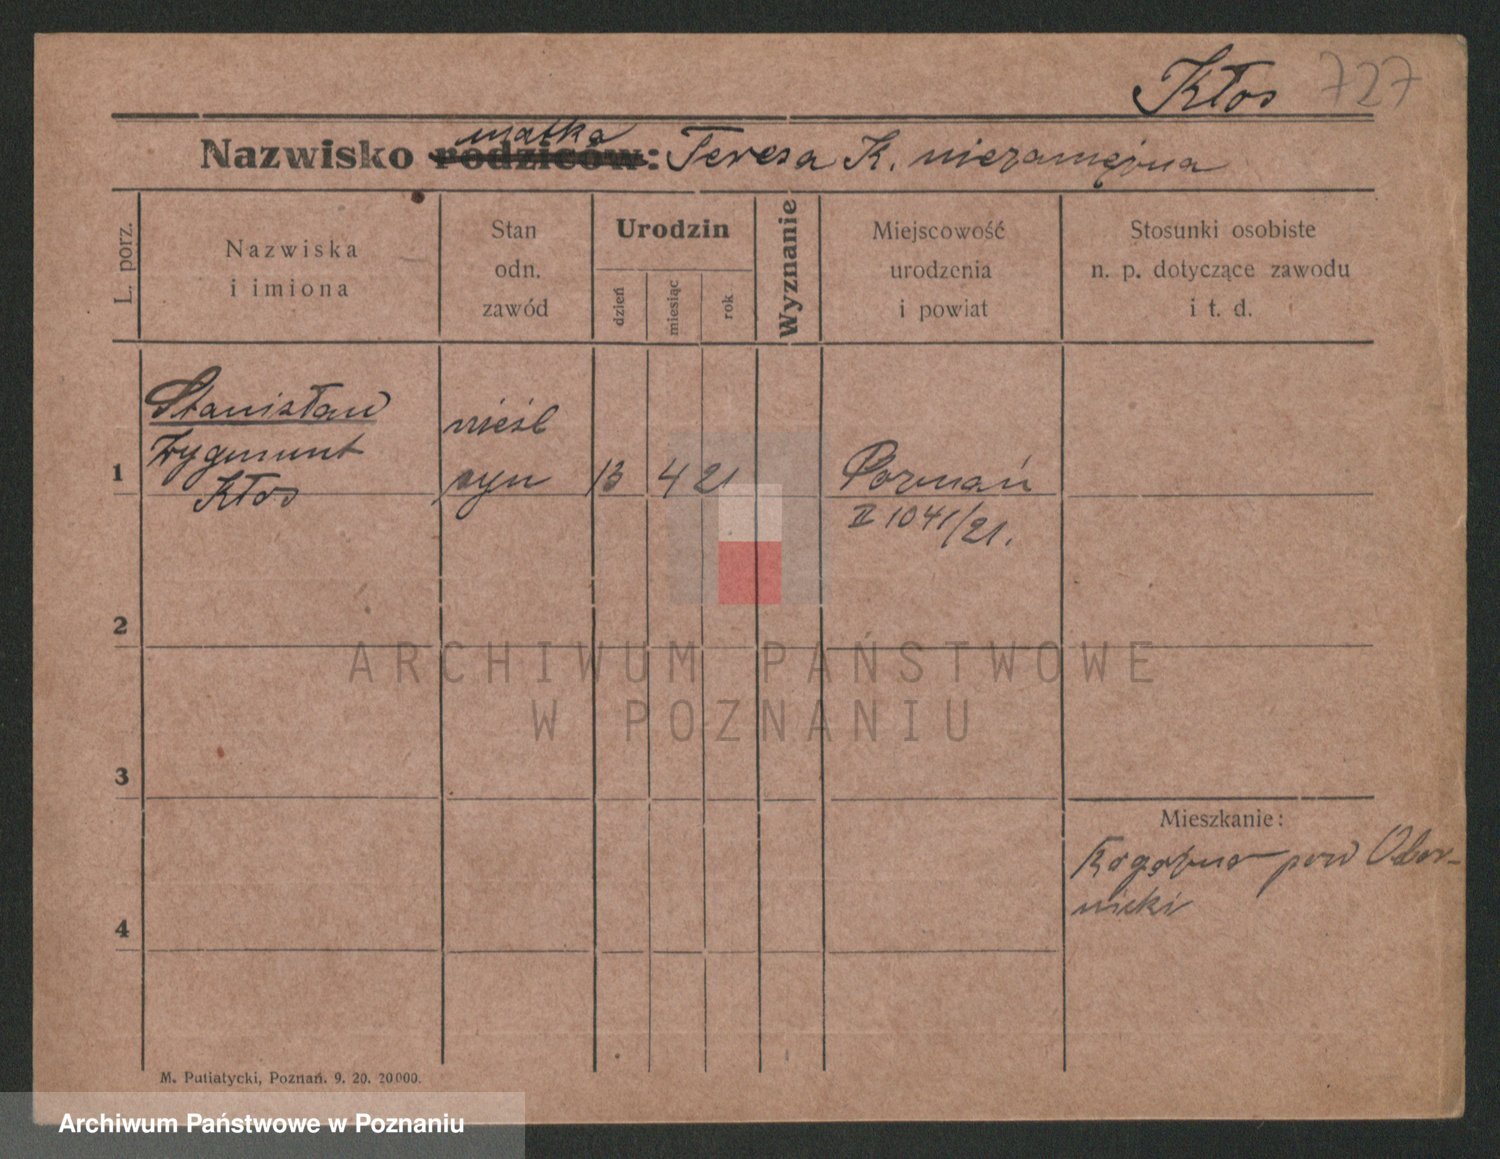 Kłos 727
matka
Nazwisko rodziców: Teresa K. niezamężna
L. porz.
Nazwiska
i imiona
Stan
odn.
zawód
Urodzin
dzień
miesiąc
rok
Wyznanie
Miejscowość
urodzenia
i powiat
Stosunki osobiste
n. p. dotyczące zawodu
i t. d.
1
Stanisław
Zygmunt
Kłos
nieśl
syn
13
4
21
Poznań
II 1041/21.
2
ARCHIWUM PAŃSTWOWE
W POZNANIU
3
Mieszkanie:
pow Obor-
nicki
4
M. Putiatycki, Poznań. 9. 20. 20000.
Archiwum Państwowe w Poznaniu